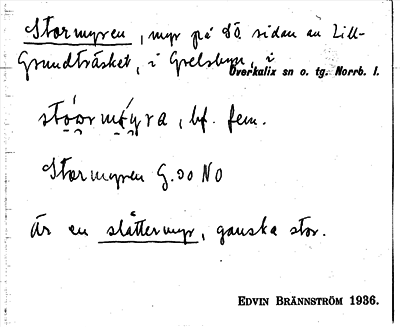 Stormyren, myr på SÖ sidan av Lill-
Grundträsket, i Grelsbyn, i
Överkalix sn o. tg. Norrb. l.
bf. fem.
Stormyren G.90 NO
Är en slåttermyr, ganska stor.
EDVIN BRÄNNSTRÖM 1936.